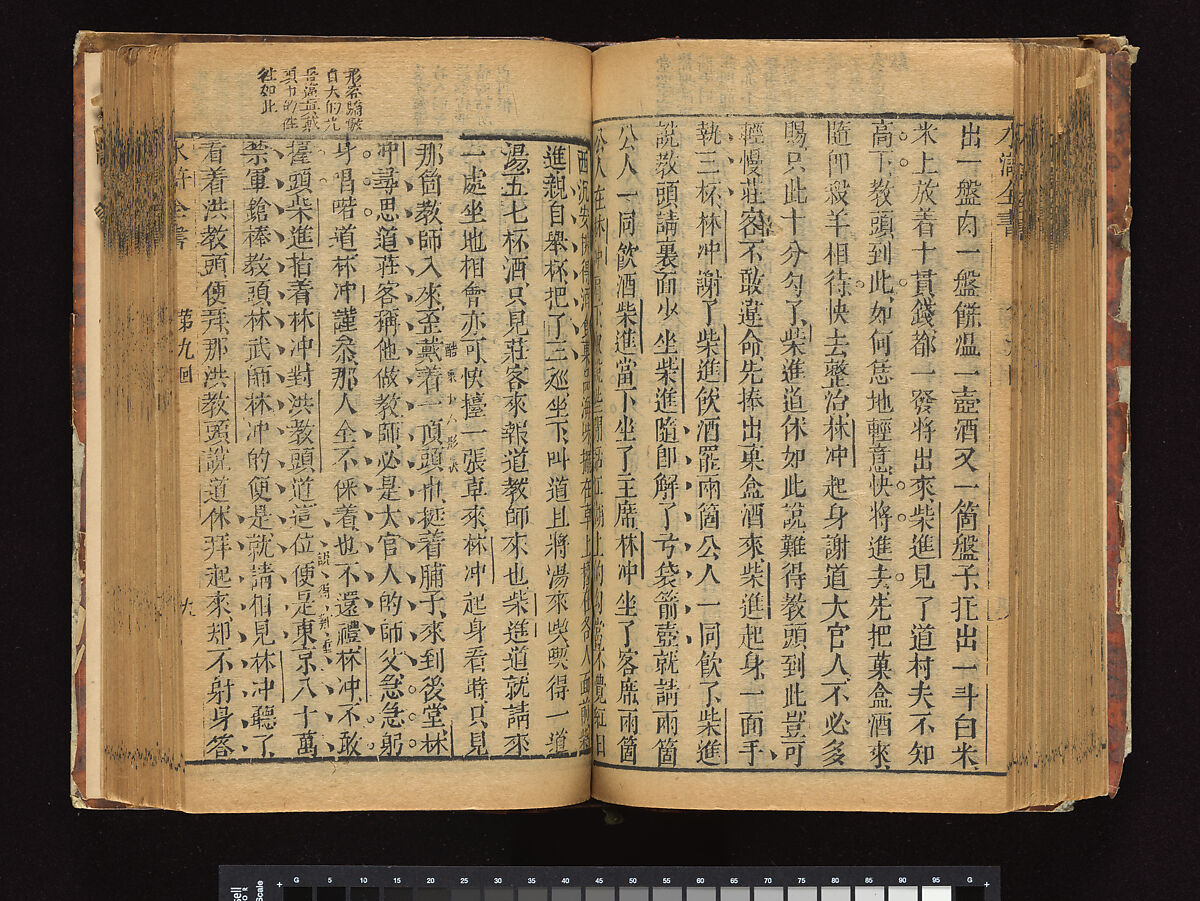 水滸全書
出一盤肉一盤餅溫一壺酒又一箇盤子托出一斗白米
米上放着十貫錢都一發將出來柴進見了道村夫不知
高下教頭到此如何恁地輕意快將進去先把菓盒酒來
隨即殺羊相待快去整治林冲起身謝道大官人不必多
賜只此十分勾了柴進道休如此說難得教頭到此豈可
輕慢莊客不敢違命先捧出菓盒酒來柴進起身一面手
執三杯林冲謝了柴進飲酒罷兩箇公人一同飲了柴進
說教頭請裏面少坐柴進隨即解了弓袋箭壺就請兩箇
公人一同飲酒柴進當下坐了主席林冲坐了客席兩箇
公人在林冲
進親自舉杯把了三巡坐下叫道且將湯來喫喫得一道
湯五七杯酒只見莊客來報道教師來也柴進道就請來
一處坐地相會亦可快擡一張卓來林冲起身看時只見
那箇教師入來歪戴着一頂頭巾挺着脯子來到後堂林
冲尋思道莊客稱他做教師必是大官人的師父急急躬
身唱喏道林冲謹參那人全不倸着也不還禮林冲不敢
擡頭柴進指着林冲對洪教頭道這位便是東京八十萬
禁軍鎗棒教頭林武師林冲的便是就請相見林冲聽了
看着洪教頭便拜那洪教頭說道休拜起來却不躬身答
水滸全書
第九回
九
形容驕傲
自大的光
往如此